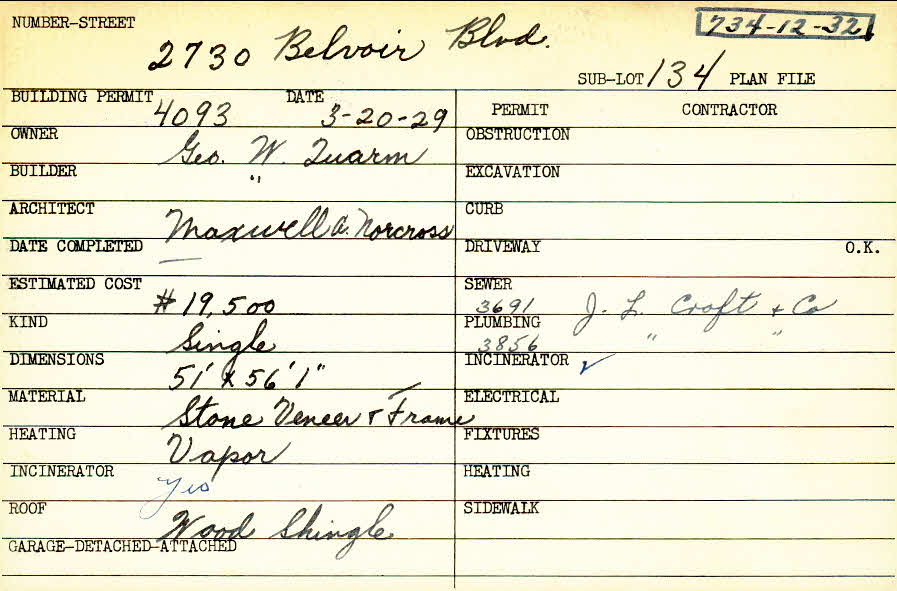 NUMBER-STREET 734-12-32
2730 Belvoir Blvd.
SUB-LOT 134 PLAN FILE
BUILDING PERMIT 4093 DATE 3-20-29
PERMIT CONTRACTOR
OWNER Geo. W. Quarm
OBSTRUCTION
BUILDER "
EXCAVATION
ARCHITECT Maxwell A. Norcross
CURB
DATE COMPLETED —
DRIVEWAY O.K.
ESTIMATED COST # 19,500
SEWER 3691 J. L. Croft + Co
KIND Single
PLUMBING 3856 " "
DIMENSIONS 51' x 56' 1"
INCINERATOR ✓
MATERIAL Stone Veneer & Frame
ELECTRICAL
HEATING Vapor
FIXTURES
INCINERATOR Yes
HEATING
ROOF Wood Shingle
SIDEWALK
GARAGE-DETACHED-ATTACHED